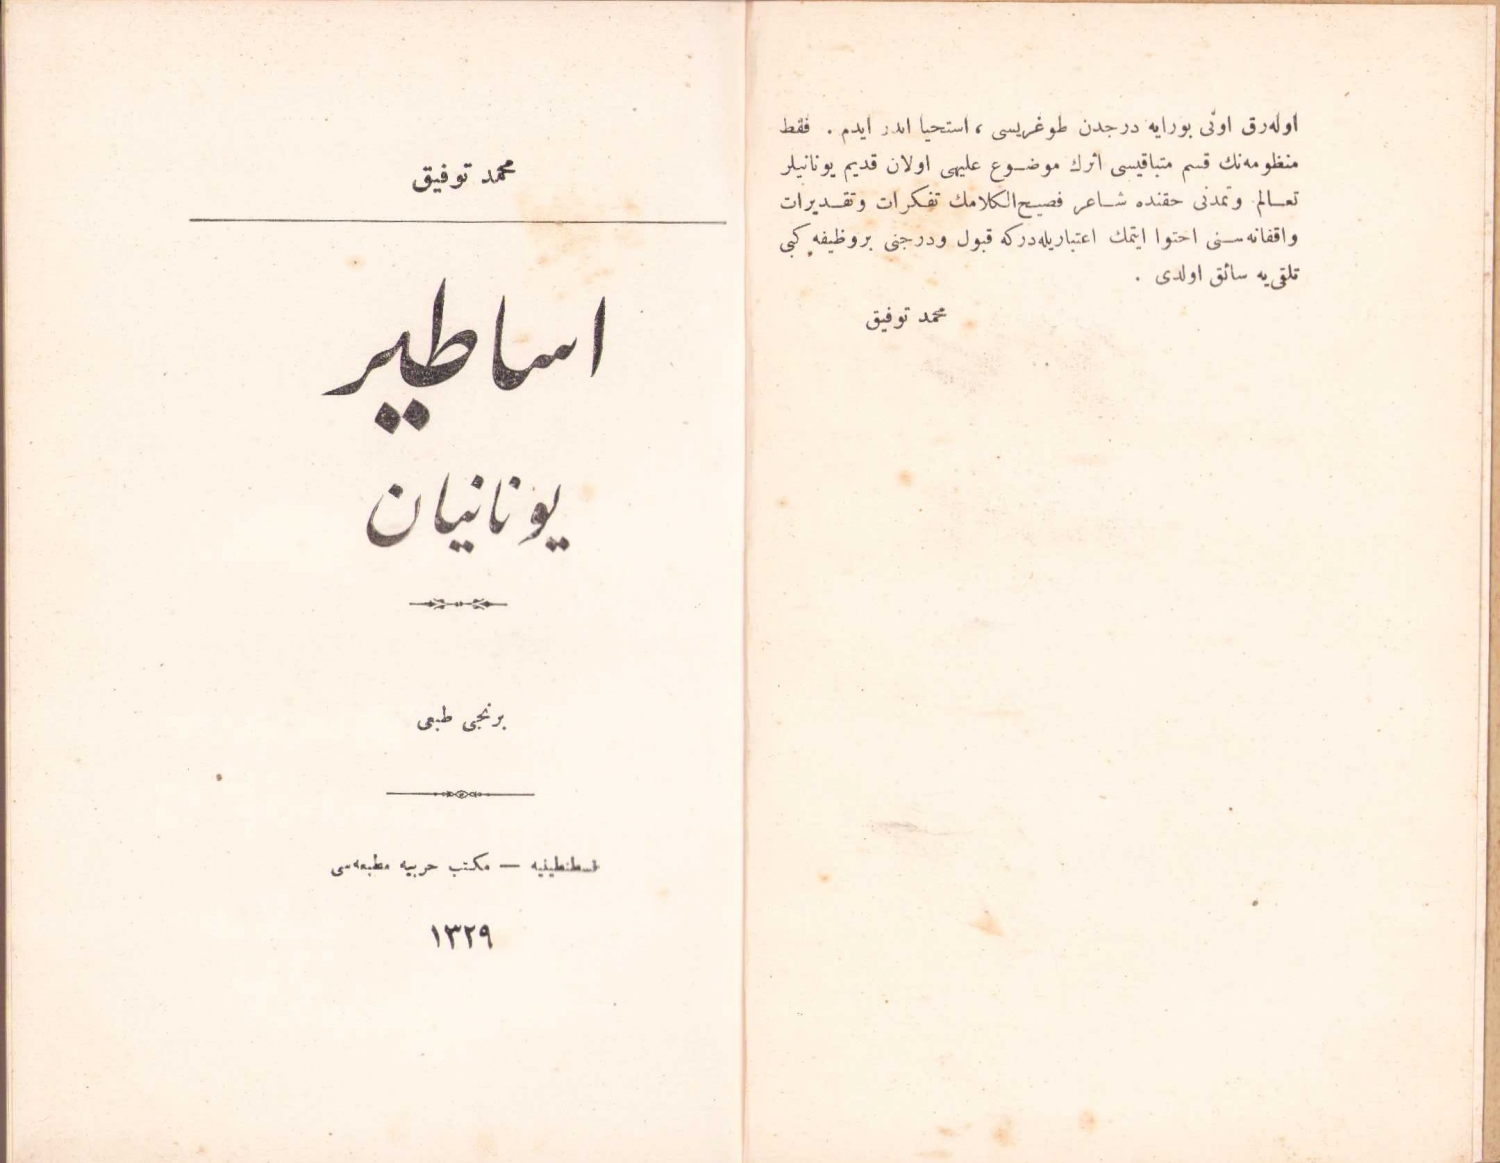 اوله‌رق اونی بورایه درجدن طوغریسی ، استحیا ایدر ایدم . فقط
منظومه‌نك قسم متباقیسی اثرك موضوع علیهی اولان قدیم یونانیلر
تعالم وتمدنی حقنده شاعر فصیح‌الكلامك تفكرات وتقدیرات
واقفانه‌سنی احتوا ایتمك اعتباریله‌دركه قبول ودرجنی بروظیفه كبی
تلقی‌یه سائق اولدی .
محمد توفیق
محمد توفیق
اساطیر
یونانیان
برنجی طبعی
قسطنطینیه — مكتب حربیه مطبعه‌سی
١٣٢٩